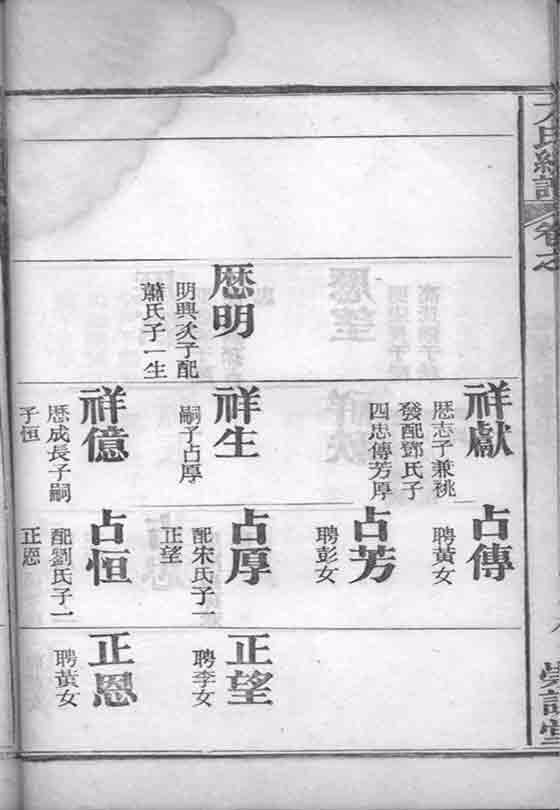 卷之
厯明
明興次子配
蕭氏子一生
祥獻
厯志子兼祧
發配鄧氏子
四忠傳芳厚
祥生
嗣子占厚
祥億
厯成長子嗣
子恒
占傳
聘黃女
占芳
聘彭女
占厚
配宋氏子一
正望
占恒
配劉氏子一
正恩
正望
聘李女
正恩
聘黃女